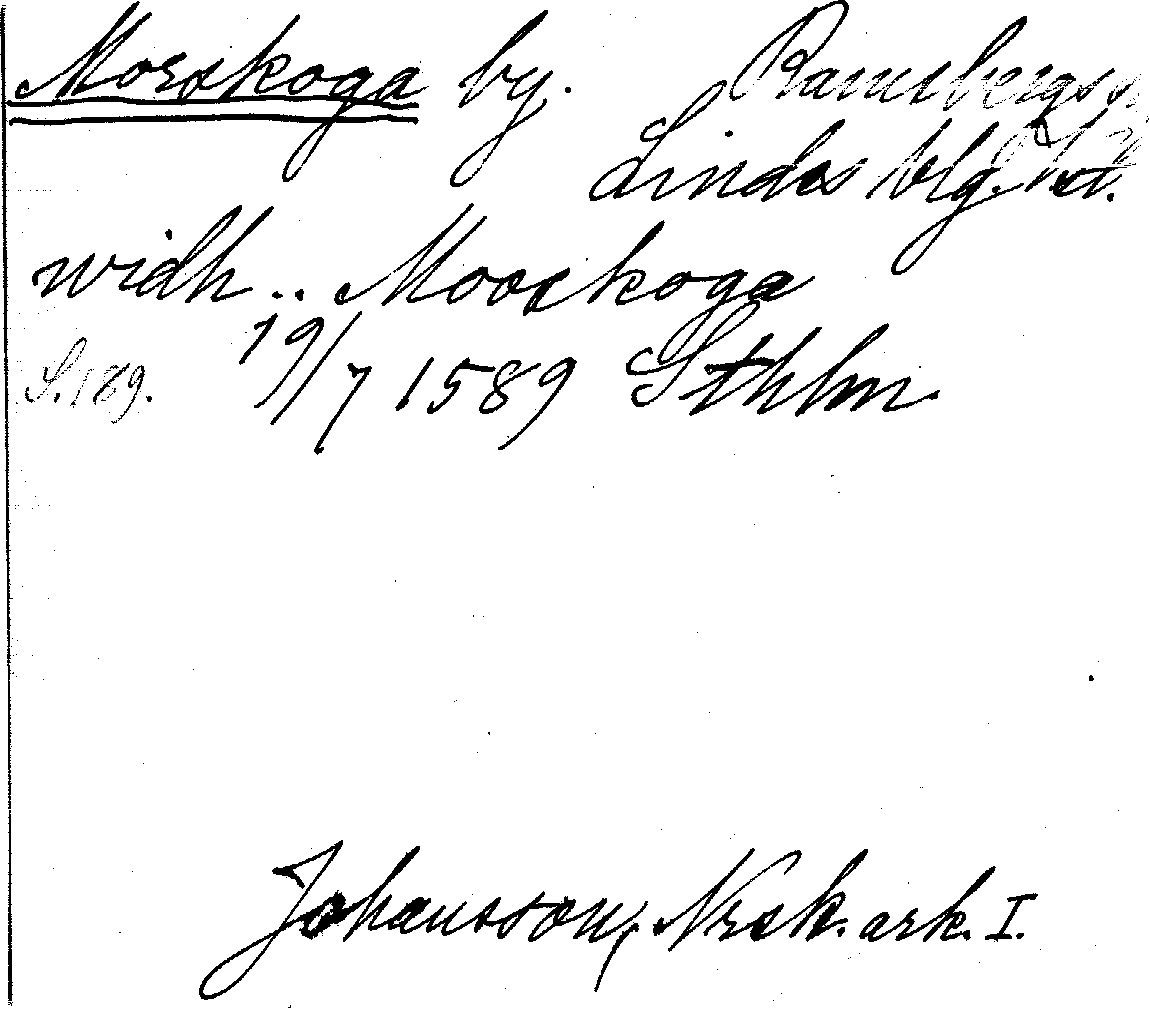 Morskoga by. Ramsbergs s
Lindes blg.
widh .. Mooskoga
S. 189. 19/7 1589 Sthlm
Johansson, Nrsk. ark. I.